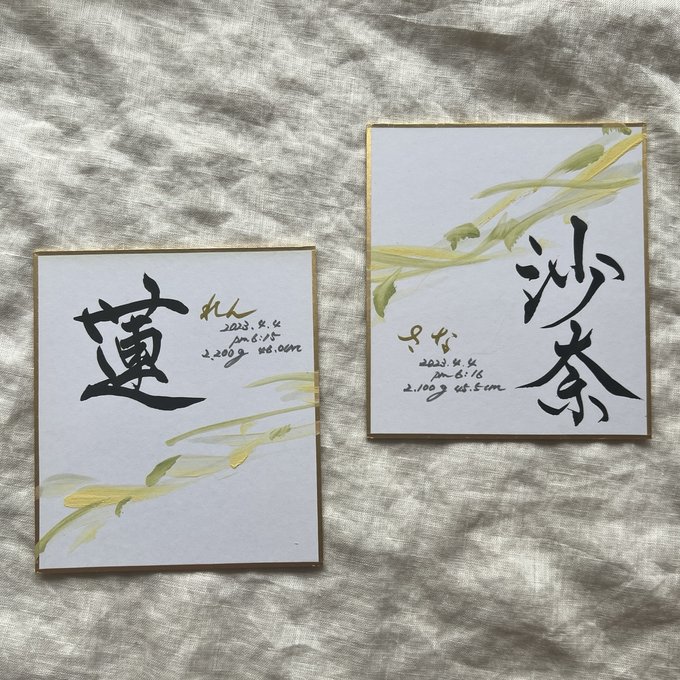 蓮
れん
2023.4.4
pm6:15
2.200g 46.0cm
沙奈
さな
2023.4.4
pm6:16
2.100g 45.5cm